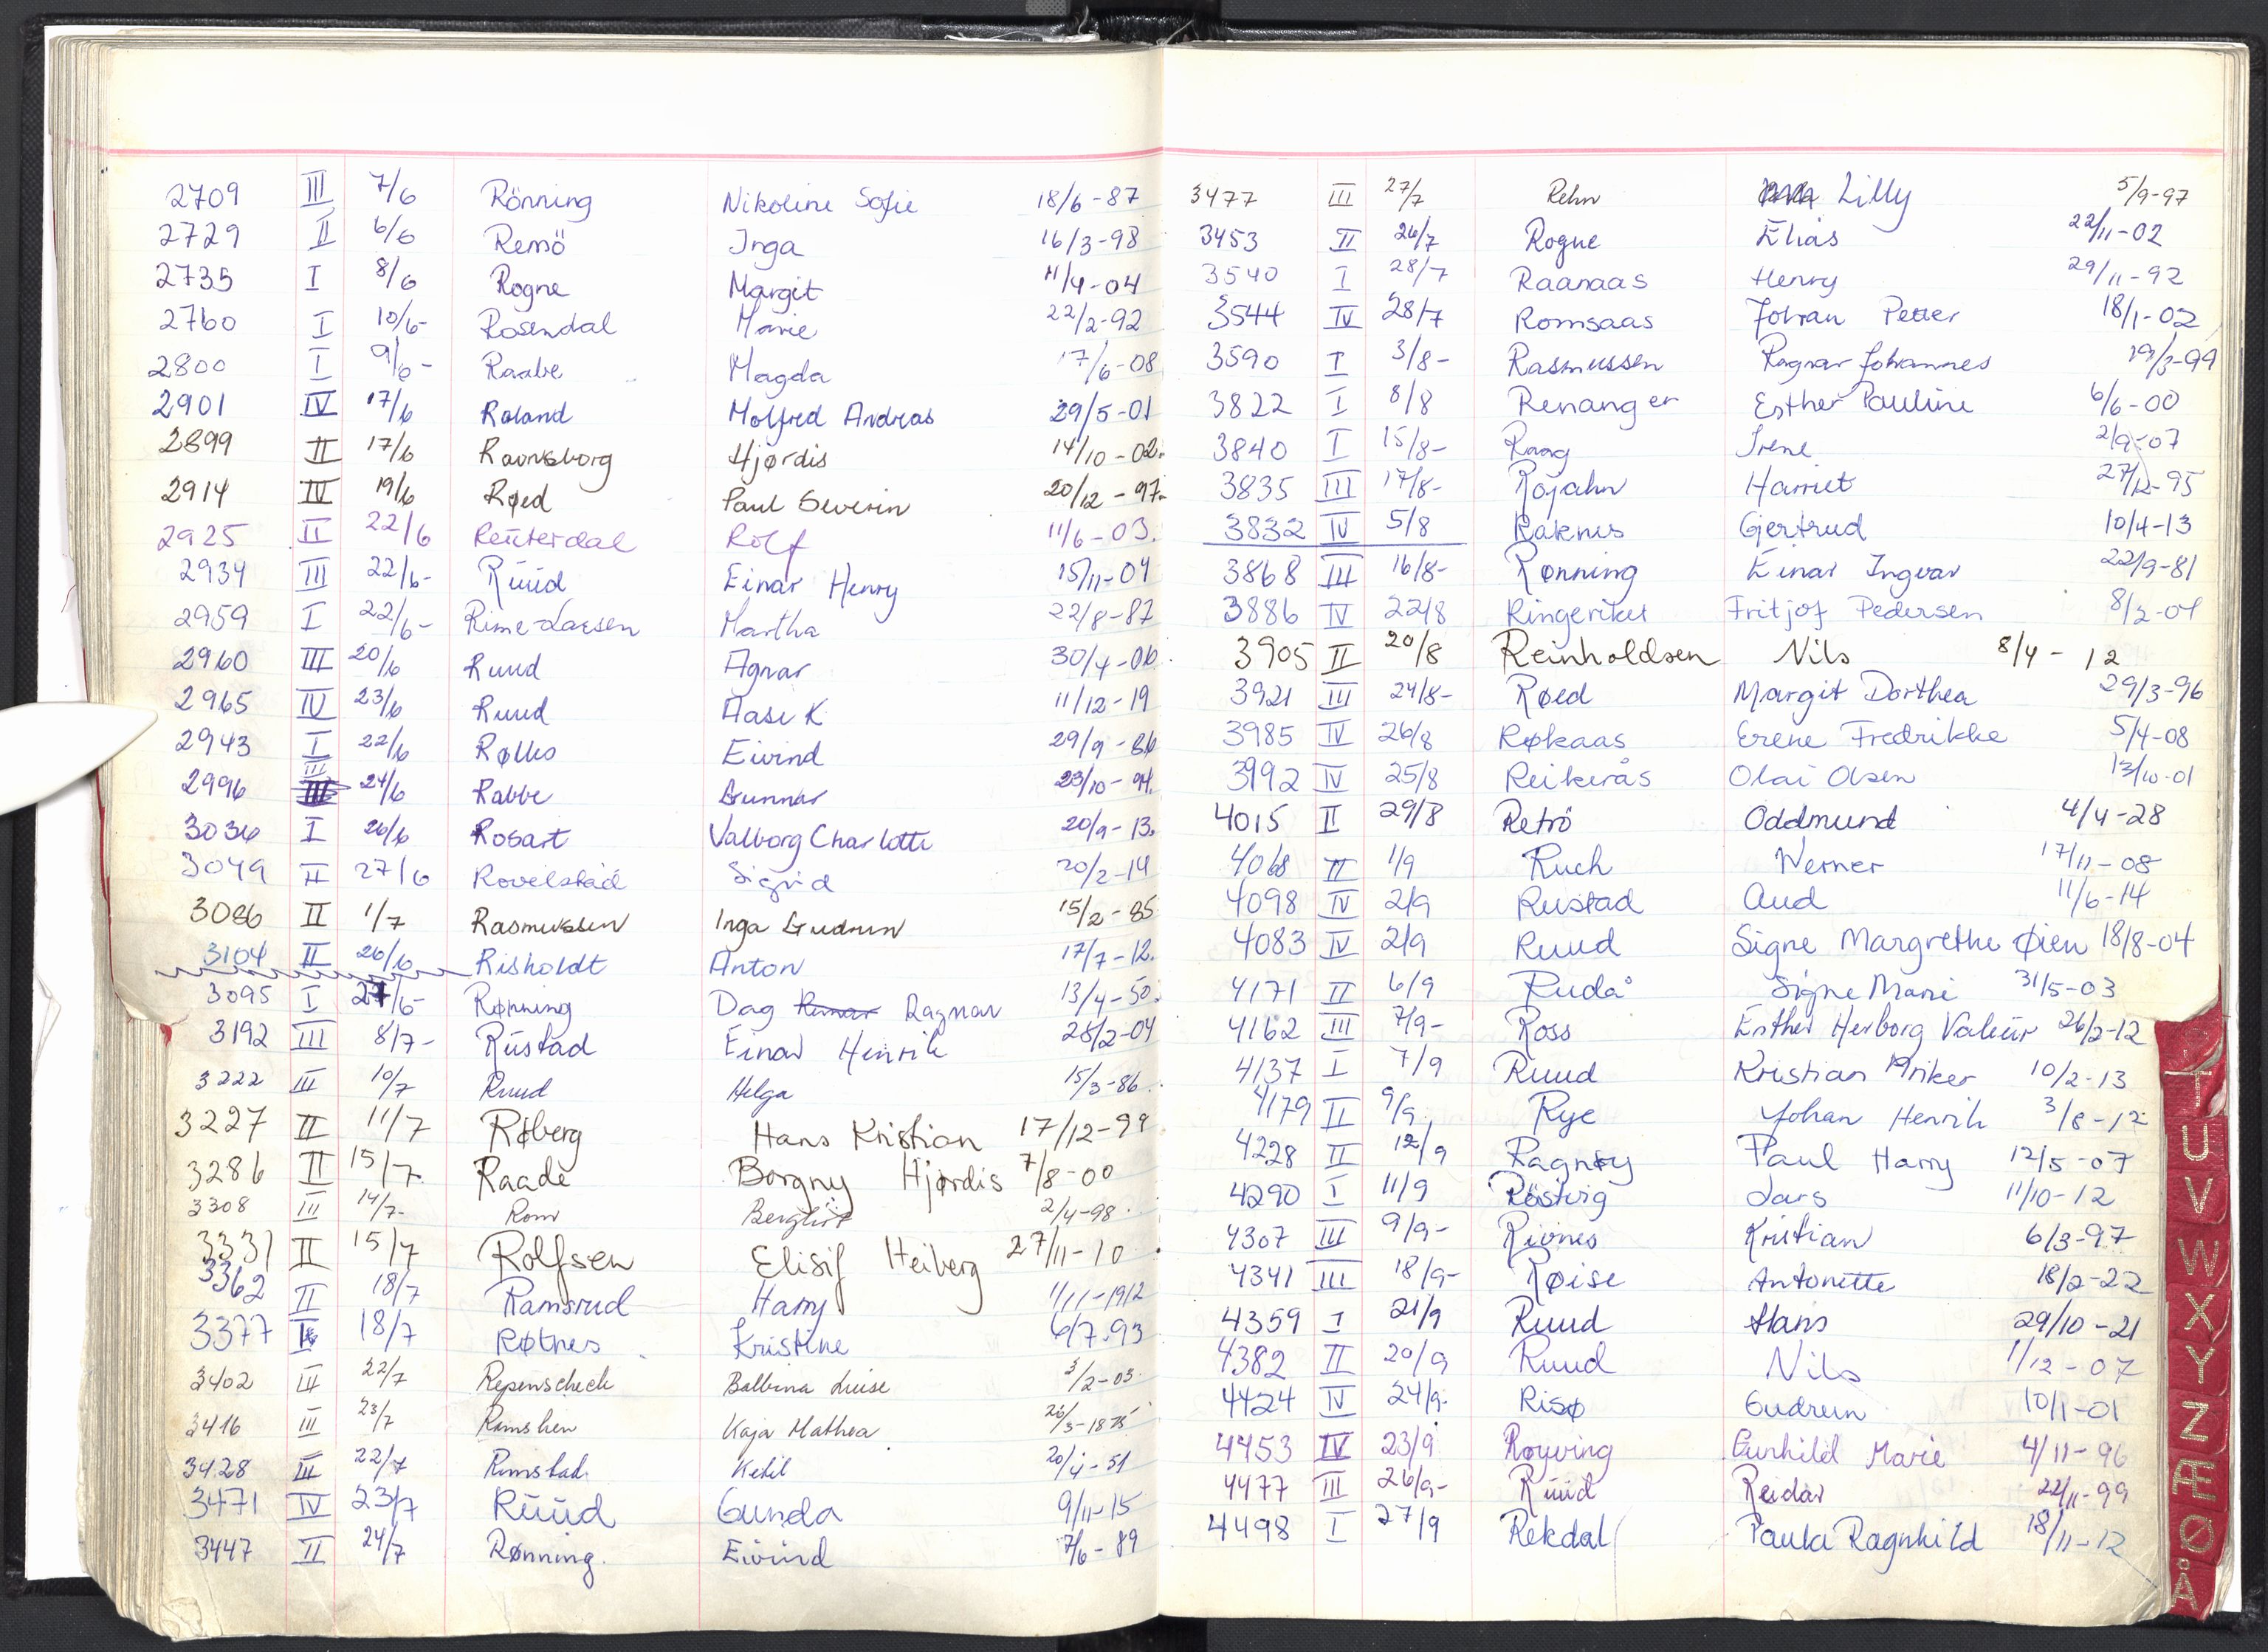 2709 III 7/6 Rönning Nikoline Sofie 18/6-87
2729 II 6/6 Remö Inga 16/3-98
2735 I 8/6 Rogne Margit 11/4-04
2760 I 10/6- Rosendal Marie 22/2-92
2800 I 9/6- Raabe Magda 17/6-08
2901 IV 17/6 Roland Molfred Andreas 29/5-01
2899 II 17/6 Ravnsborg Hjørdis 14/10-02.
2914 IV 19/6 Røed Paul Severin 20/12-97-
2925 II 22/6 Reuterdal Rolf 11/6-03.
2934 III 22/6- Ruud Einar Henry 15/11-04
2959 I 22/6- Rime-Larsen Martha 22/8-87
2960 III 20/6 Ruud Agnar 30/4-06.
2965 IV 23/6 Ruud Aase K 11/12-19
2943 I 22/6 Eivind 29/9-86
2996 III 24/6 Rabbe Gunnar 23/10-94.
3036 I 26/6 Rosart Valborg Charlotte 20/9-13.
3049 II 27/6 Rovelstad Sigrid 20/2-14
3086 II 1/7 Rasmussen Inga Gudrun 15/2-85
3104 II 26/6 Risholdt Anton 17/7-12.
3095 I 27/6- Rønning Dag Ragnar 13/4-50.
3192 III 8/7- Rustad Einar Henrik 28/2-04
3222 III 10/7 Ruud Helga 15/3-86.
3227 II 11/7 Røberg Hans Kristian 17/12-99
3286 II 15/7. Raade Borgny Hjørdis 7/8-00
3308 III 14/7- Rom Bergliot 2/4-98.
3331 II 15/7 Rolfsen Elisif Heiberg 27/11-10.
3362 II 18/7 Ramsrud Harry 1/11-1912
3377 18/7 Røtnes Kristine 6/7-93
3402 III 22/7 Repenscheck Balbina Luise 3/2-03.
3416 III 23/7 Kaja Mathea 26/3-1875
3428 III 22/7 Rimstad. Ketil 20/4-51
3471 IV 23/7 Ruud Gunda 9/11-15
3447 II 24/7 Rønning. Eivind 7/6-89
3477 III 27/7 Rehn Lilly 5/9-97
3453 II 26/7 Rogne Elias 22/11-02
3540 I 28/7 Raanaas Henry 29/11-92
3544 IV 28/7 Romsaas Johan Petter 18/1-02
3590 I 3/8- Rasmussen Ragnar Johannes 19/3-99
3822 I 8/8 Renanger Esther Pauline 6/6-00
3840 I 15/8- Raag Irene 2/9-07
3835 III 17/8- Rojahn Harriet 27/12-95
3832 IV 5/8 Raknes Gjertrud 10/4-13
3868 III 16/8- Rønning Einar Ingvar 22/9-81
3886 IV 22/8 Ringeriket Fritjof Pedersen 8/2-04
3905 II 20/8 Reinholdsen Nils 8/4-12
3921 III 24/8- Røed Margit Dorthea 29/3-96
3985 IV 26/8 Røkaas Erene Fredrikke 5/4-08
3992 IV 25/8 Reikerås Olai Olsen 13/10-01
4015 II 29/8 Retrö Oddmund 4/4-28
4068 II 1/9 Ruch Werner 17/11-08
4098 IV 2/9 Rustad Aud 11/6-14
4083 IV 2/9 Ruud Signe Margrethe Øien 18/8-04
4171 II 6/9 Rudå Signe Marie 31/5-03
4162 III 7/9- Ross Esther Herborg Valeur 26/2-12
4137 I 7/9 Ruud Kristian Anker 10/2-13
4179 II 9/9. Rye Johan Henrik 3/8-12
4228 II 12/9 Ragnøy Paul Harry 12/5-07
4290 I 11/9 Röstvig Lars 11/10-12
4307 III 9/9- Risnes Kristian 6/3-97
4341 III 18/9- Røise Antonette 18/2-22
4359 I 21/9 Ruud Hans 29/10-21
4382 II 20/9 Ruud Nils 1/12-07
4424 IV 24/9. Risø Gudrun 10/1-01
4453 IV 23/9. Røyving Gunhild Marie 4/11-96
4477 III 26/9- Ruud Reidar 22/11-99
4498 I 27/9 Rekdal Paula Ragnhild 18/11-12
T
U
V
W
X
Y
Z
Æ
Ø
Å